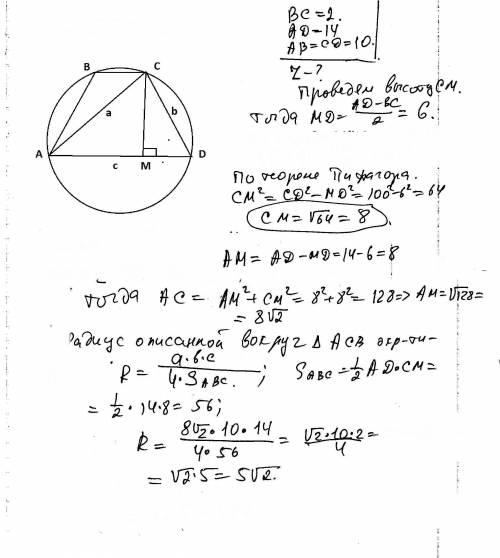 BC = 2.
AD = 14
AB = CD = 10.
r - ?
Проведем высоту CM.
тогда MD = (AD - BC)/2 = 6.
B
C
a
b
A
c
M
D
По теореме Пифагора.
CM² = CD² - MD² = 100² - 6² = 64
CM = √64 = 8
AM = AD - MD = 14 - 6 = 8
тогда AC = AM² + CM² = 8² + 8² = 128 => AM = √128 =
= 8√2
Радиус описанной вокруг Δ ACB окр-ти -
R = a·b·c / 4·S ABC. ; S ABC = 1/2 AD·CM =
= 1/2 · 14·8 = 56;
R = 8√2·10·14 / 4·56 = √2·10·2 / 4 =
= √2·5 = 5√2.